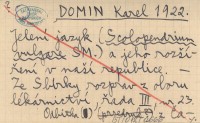 DOMIN Karel 1922.
Jelení jazyk (Scolopendrium
vulgare SM.) a jeho rozší-
ření v naší republice. –
Ze Sbírky rozprav z oboru
lékárnictví, řada III č. 23.